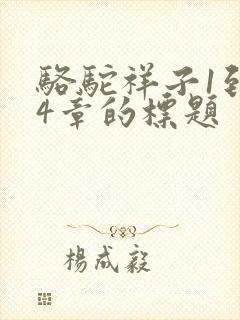 駱駝祥子1到
4章的標題
楊成毅